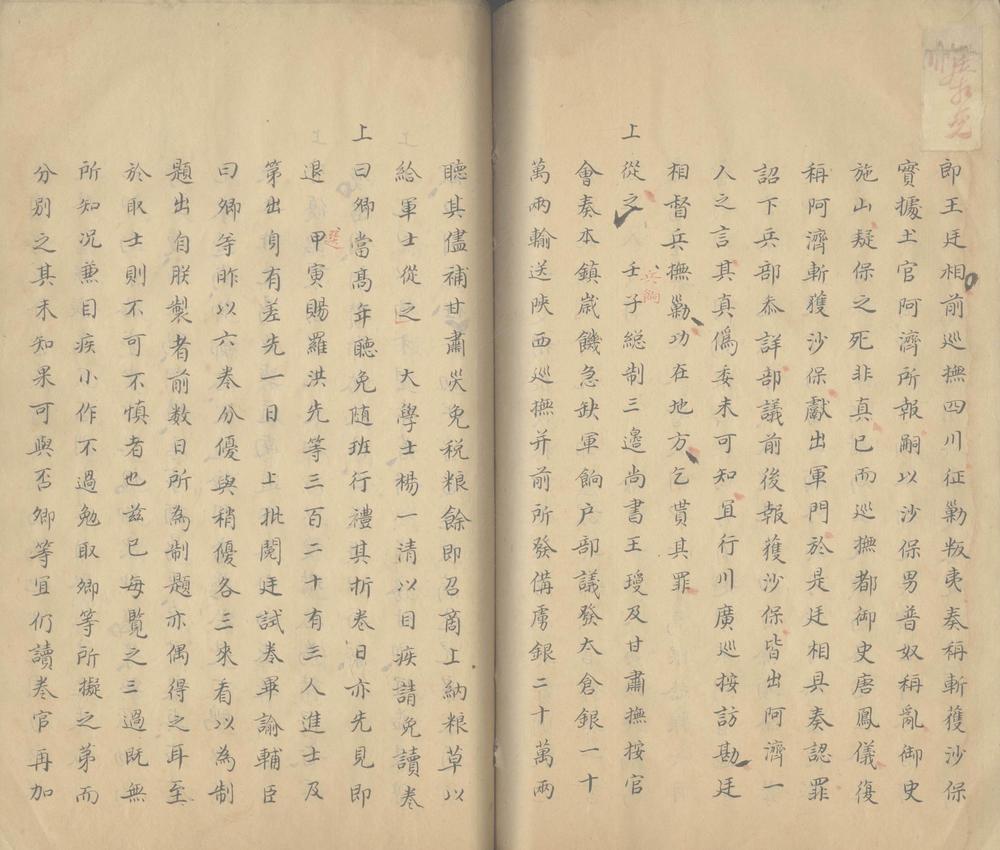 郎王廷相前巡撫四川征勦叛夷奏稱斬獲沙保
實據土官阿濟所報嗣以沙保男普奴稱亂御史
施山疑保之死非真已而巡撫都御史唐鳳儀復
稱阿濟斬獲沙保獻出軍門於是廷相具奏認罪
詔下兵部叅詳部議前後報獲沙保皆出阿濟一
人之言其真偽委未可知宜行川廣巡按訪勘廷
相督兵撫勦功在地方乞貰其罪
上從之 壬子總制三邊尚書王瓊及甘肅撫按官
兵餉
會奏本鎮歲饑急缺軍餉户部議發太倉銀一十
萬兩輸送陝西巡撫并前所發備虜銀二十萬兩
聽其儘補甘肅災免税粮餘即召商上納粮草以
給軍士從之 大學士楊一清以目疾請免讀卷
上曰卿當髙年聽免随班行禮其折卷日亦先見即
退 甲寅賜羅洪先等三百二十有三人進士及
第出身有差先一日 上批閱廷試卷畢諭輔臣
曰卿等昨以六卷分優與稍優各三來看以為制
題出自朕製者前数日所為制題亦偶得之耳至
於取士則不可不慎者也兹已每覽之三過既無
所知况兼目疾小作不過勉取卿等所擬之第而
分别之其未知果可與否卿等宜仍讀卷官再加